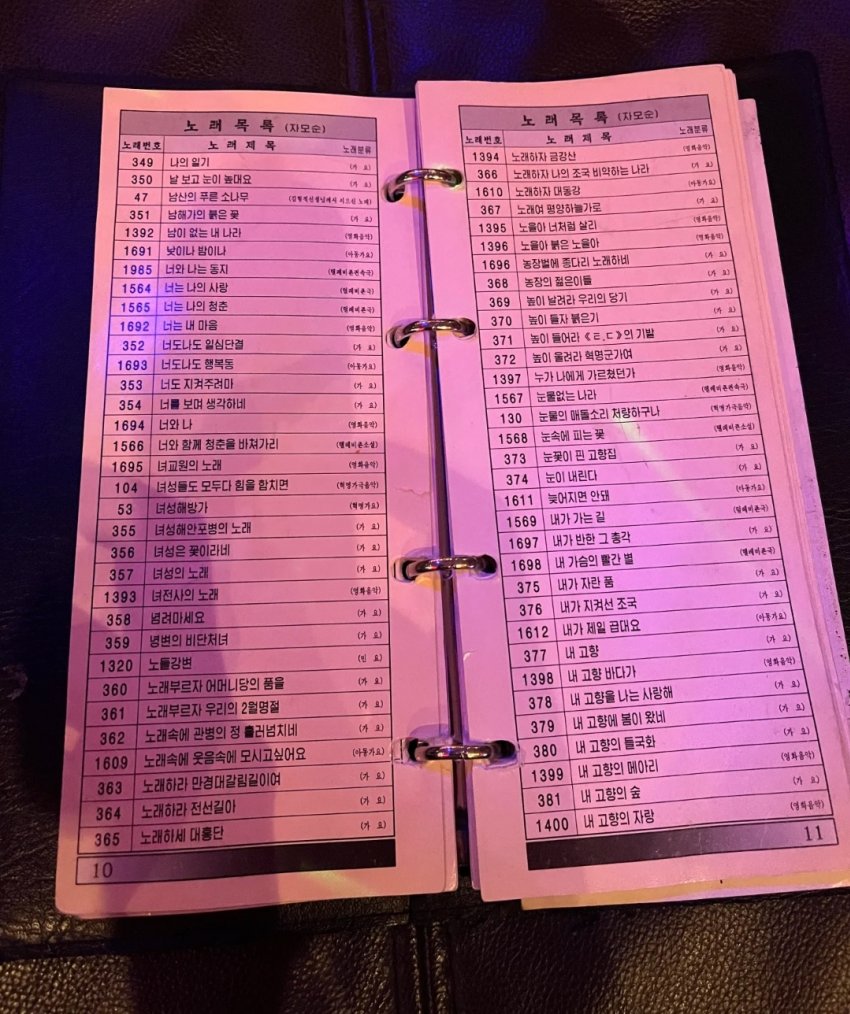 노래목록 (자모순)
노래번호 노래제목 노래분류
349 나의 일기 (가요)
350 날 보고 눈이 높대요 (가요)
47 남산의 푸른 소나무 (김형직선생님께서 지으신 노래)
351 남해가의 붉은 꽃 (가요)
1392 남이 없는 내 나라 (영화음악)
1691 낮이나 밤이나 (아동가요)
1985 너와 나는 동지 (텔레비죤련속극)
1564 너는 나의 사랑 (텔레비죤극)
1565 너는 나의 청춘 (텔레비죤극)
1692 너는 내 마음 (영화음악)
352 너도나도 일심단결 (가요)
1693 너도나도 행복동 (아동가요)
353 너도 지켜주려마 (가요)
354 너를 보며 생각하네 (가요)
1694 너와 나 (영화음악)
1566 너와 함께 청춘을 바쳐가리 (텔레비죤소설)
1695 녀교원의 노래 (영화음악)
104 녀성들도 모두다 힘을 합치면 (혁명가극음악)
53 녀성해방가 (혁명가요)
355 녀성해안포병의 노래 (가요)
356 녀성은 꽃이라네 (가요)
357 녀성의 노래 (가요)
1393 녀전사의 노래 (영화음악)
358 념려마세요 (가요)
359 녕변의 비단처녀 (가요)
1320 노들강변 (민요)
360 노래부르자 어머니당의 품을 (가요)
361 노래부르자 우리의 2월명절 (가요)
362 노래속에 관병의 정 흘러넘치네 (가요)
1609 노래속에 웃음속에 모시고싶어요 (아동가요)
363 노래하라 만경대갈림길이여 (가요)
364 노래하라 전선길아 (가요)
365 노래하세 대홍단 (가요)
10
노래목록 (자모순)
노래번호 노래제목 노래분류
1394 노래하자 금강산 (영화음악)
366 노래하자 나의 조국 비약하는 나라 (가요)
1610 노래하자 대동강 (아동가요)
367 노래여 평양하늘가로 (가요)
1395 노을아 너처럼 살리 (영화음악)
1396 노을아 붉은 노을아 (영화음악)
1696 농장벌에 종다리 노래하네 (가요)
368 농장의 젊은이들 (가요)
369 높이 날려라 우리의 당기 (가요)
370 높이 들자 붉은기 (가요)
371 높이 들어라 《ㅌ.ㄷ》의 기발 (가요)
372 높이 올려라 혁명군가여 (가요)
1397 누가 나에게 가르쳤던가 (영화음악)
1567 눈물없는 나라 (텔레비죤련속극)
130 눈물의 매돌소리 처량하구나 (혁명가극음악)
1568 눈속에 피는 꽃 (텔레비죤소설)
373 눈꽃이 핀 고향집 (가요)
374 눈이 내린다 (가요)
1611 늦어지면 안돼 (아동가요)
1569 내가 가는 길 (텔레비죤극)
1697 내가 반한 그 총각 (가요)
1698 내 가슴의 빨간 별 (텔레비죤극)
375 내가 자란 품 (가요)
376 내가 지켜선 조국 (가요)
1612 내가 제일 곱대요 (아동가요)
377 내 고향 (가요)
1398 내 고향 바다가 (영화음악)
378 내 고향을 나는 사랑해 (가요)
379 내 고향에 봄이 왔네 (가요)
380 내 고향의 들국화 (가요)
1399 내 고향의 메아리 (영화음악)
381 내 고향의 숲 (가요)
1400 내 고향의 자랑 (영화음악)
11